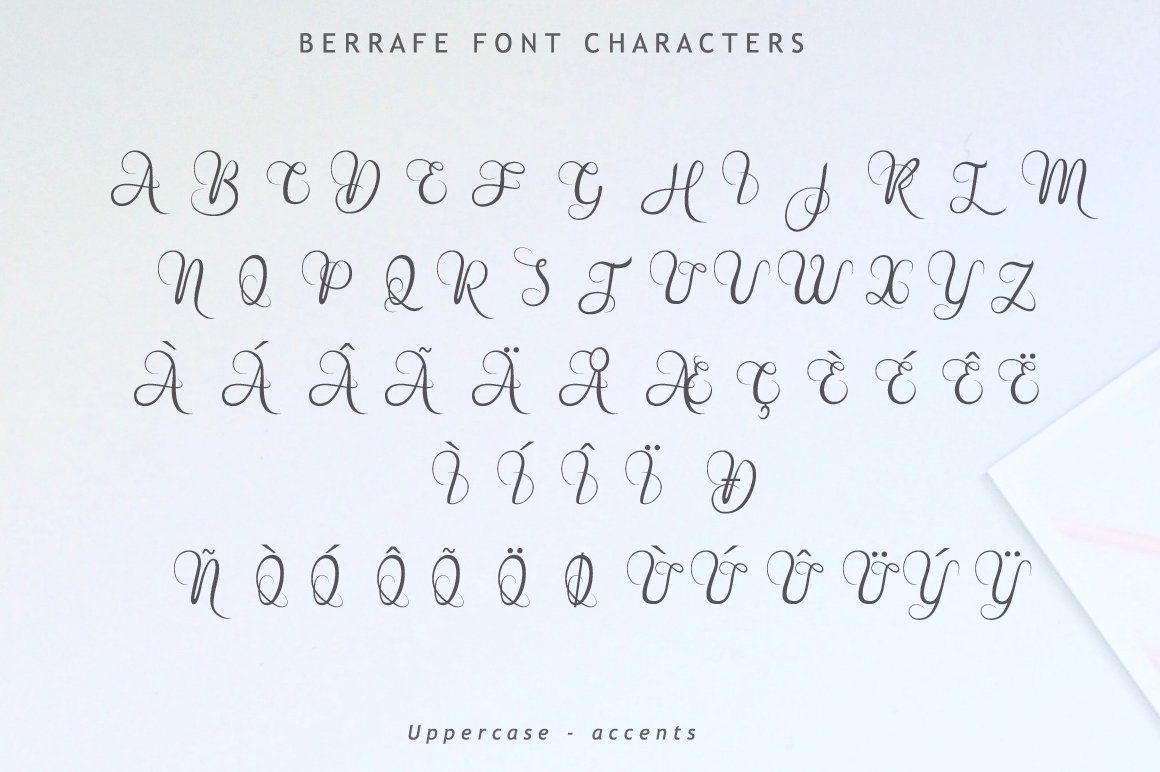 BERRAFE FONT CHARACTERS
A B C D E F G H I J K L M
N O P Q R S T U V W X Y Z
À Á Â Ã Ä Å Æ Ç È É Ê Ë
Ì Í Î Ï Ð
Ñ Ò Ó Ô Õ Ö Ø Ù Ú Û Ü Ý Ÿ
Uppercase - accents